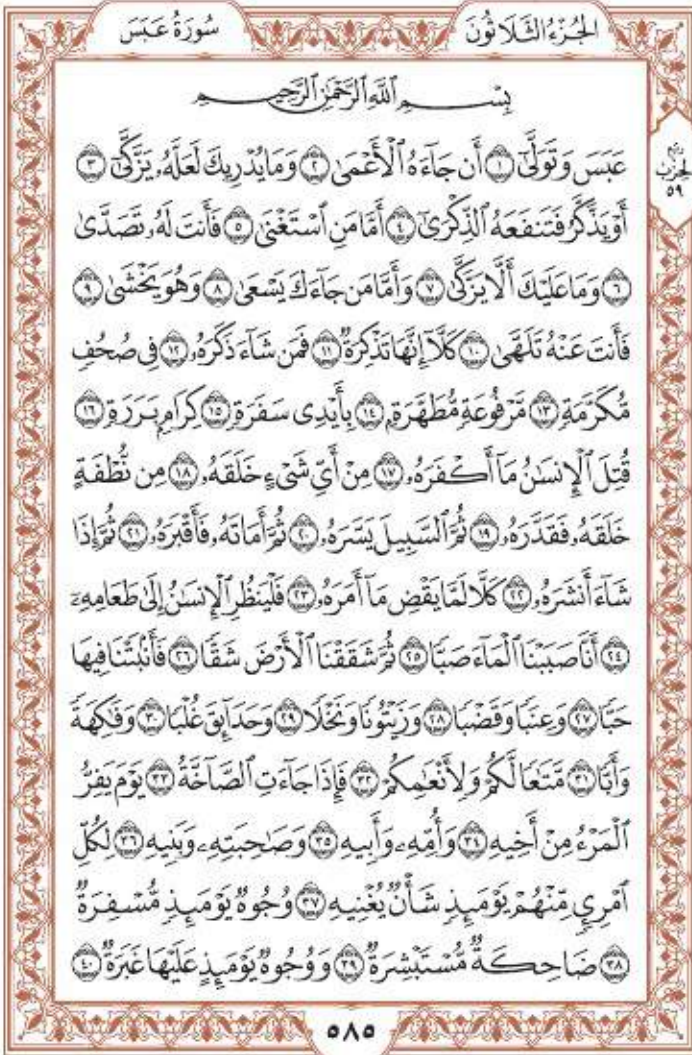 الجُزْءُ الثَّلَاثُونَ
سُورَةُ عَبَسَ
بِسْمِ ٱللَّهِ ٱلرَّحْمَٰنِ ٱلرَّحِيمِ
رُبْع
الحِزْب
٥٩
عَبَسَ وَتَوَلَّىٰٓ ١ أَن جَآءَهُ ٱلْأَعْمَىٰ ٢ وَمَا يُدْرِيكَ لَعَلَّهُۥ يَزَّكَّىٰٓ ٣
أَوْ يَذَّكَّرُ فَتَنفَعَهُ ٱلذِّكْرَىٰٓ ٤ أَمَّا مَنِ ٱسْتَغْنَىٰ ٥ فَأَنتَ لَهُۥ تَصَدَّىٰ
٦ وَمَا عَلَيْكَ أَلَّا يَزَّكَّىٰ ٧ وَأَمَّا مَن جَآءَكَ يَسْعَىٰ ٨ وَهُوَ يَخْشَىٰ ٩
فَأَنتَ عَنْهُ تَلَهَّىٰ ١٠ كَلَّآ إِنَّهَا تَذْكِرَةٌ ١١ فَمَن شَآءَ ذَكَرَهُۥ ١٢ فِى صُحُفٍ
مُّكَرَّمَةٍ ١٣ مَّرْفُوعَةٍ مُّطَهَّرَةٍۭ ١٤ بِأَيْدِى سَفَرَةٍ ١٥ كِرَامٍۭ بَرَرَةٍ ١٦
قُتِلَ ٱلْإِنسَٰنُ مَآ أَكْفَرَهُۥ ١٧ مِنْ أَىِّ شَىْءٍ خَلَقَهُۥ ١٨ مِن نُّطْفَةٍ
خَلَقَهُۥ فَقَدَّرَهُۥ ١٩ ثُمَّ ٱلسَّبِيلَ يَسَّرَهُۥ ٢٠ ثُمَّ أَمَاتَهُۥ فَأَقْبَرَهُۥ ٢١ ثُمَّ إِذَا
شَآءَ أَنشَرَهُۥ ٢٢ كَلَّا لَمَّا يَقْضِ مَآ أَمَرَهُۥ ٢٣ فَلْيَنظُرِ ٱلْإِنسَٰنُ إِلَىٰ طَعَامِهِۦٓ
٢٤ أَنَّا صَبَبْنَا ٱلْمَآءَ صَبًّا ٢٥ ثُمَّ شَقَقْنَا ٱلْأَرْضَ شَقًّا ٢٦ فَأَنۢبَتْنَا فِيهَا
حَبًّا ٢٧ وَعِنَبًا وَقَضْبًا ٢٨ وَزَيْتُونًا وَنَخْلًا ٢٩ وَحَدَآئِقَ غُلْبًا ٣٠ وَفَٰكِهَةً
وَأَبًّا ٣١ مَّتَٰعًا لَّكُمْ وَلِأَنْعَٰمِكُمْ ٣٢ فَإِذَا جَآءَتِ ٱلصَّآخَّةُ ٣٣ يَوْمَ يَفِرُّ
ٱلْمَرْءُ مِنْ أَخِيهِ ٣٤ وَأُمِّهِۦ وَأَبِيهِ ٣٥ وَصَٰحِبَتِهِۦ وَبَنِيهِ ٣٦ لِكُلِّ
ٱمْرِئٍ مِّنْهُمْ يَوْمَئِذٍ شَأْنٌ يُغْنِيهِ ٣٧ وُجُوهٌ يَوْمَئِذٍ مُّسْفِرَةٌ
٣٨ ضَاحِكَةٌ مُّسْتَبْشِرَةٌ ٣٩ وَوُجُوهٌ يَوْمَئِذٍ عَلَيْهَا غَبَرَةٌ ٤٠
٥٨٥